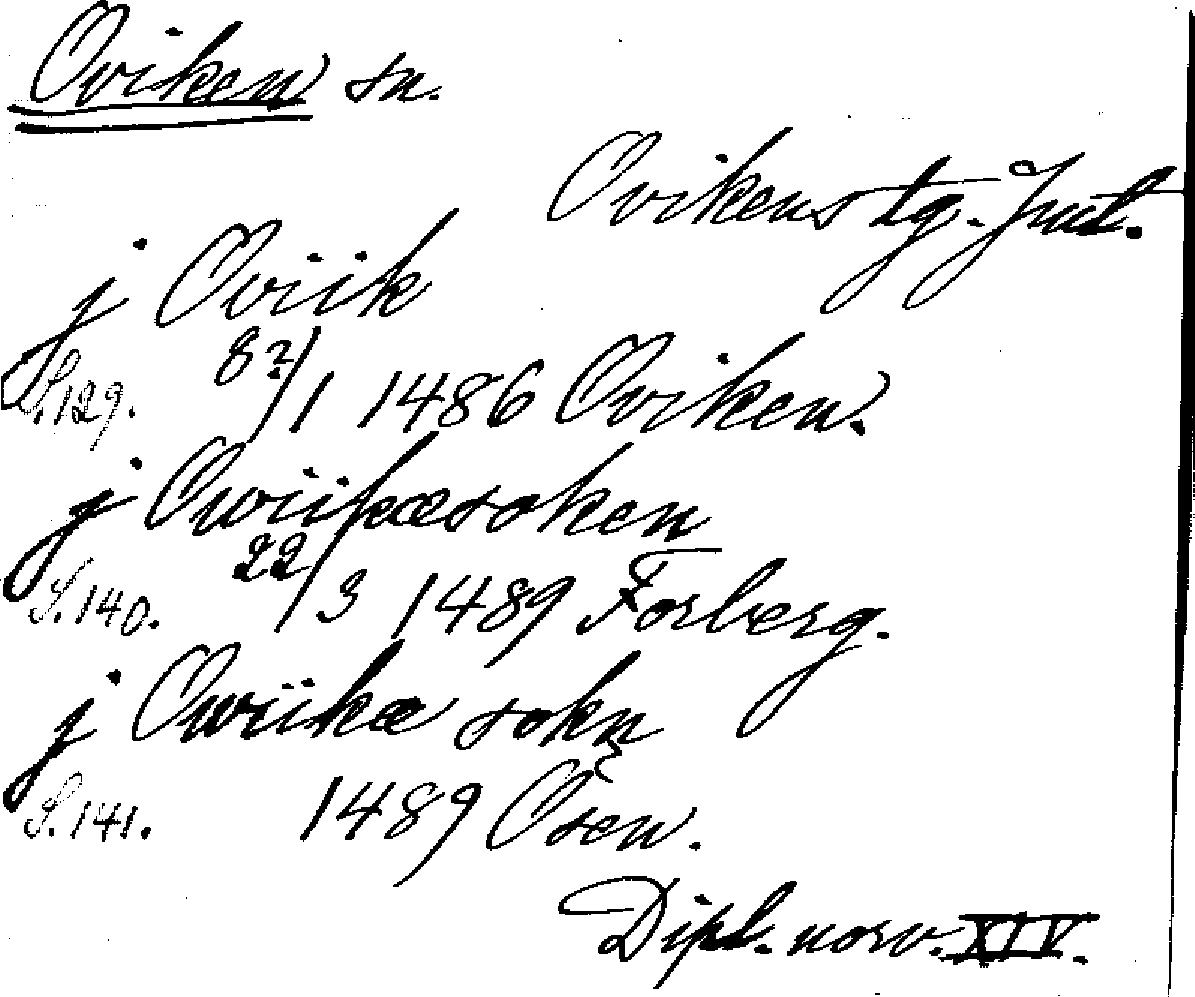 Oviken sn.
Ovikens tg. Jmtl.
j Oviik
S. 129. 8?/1 1486 Oviken.
j Owiikæsoken
S. 140. 22/3 1489 Forberg.
j Owiikæ sokn
S. 141. 1489 Åsen.
Dipl. norv. XIV.